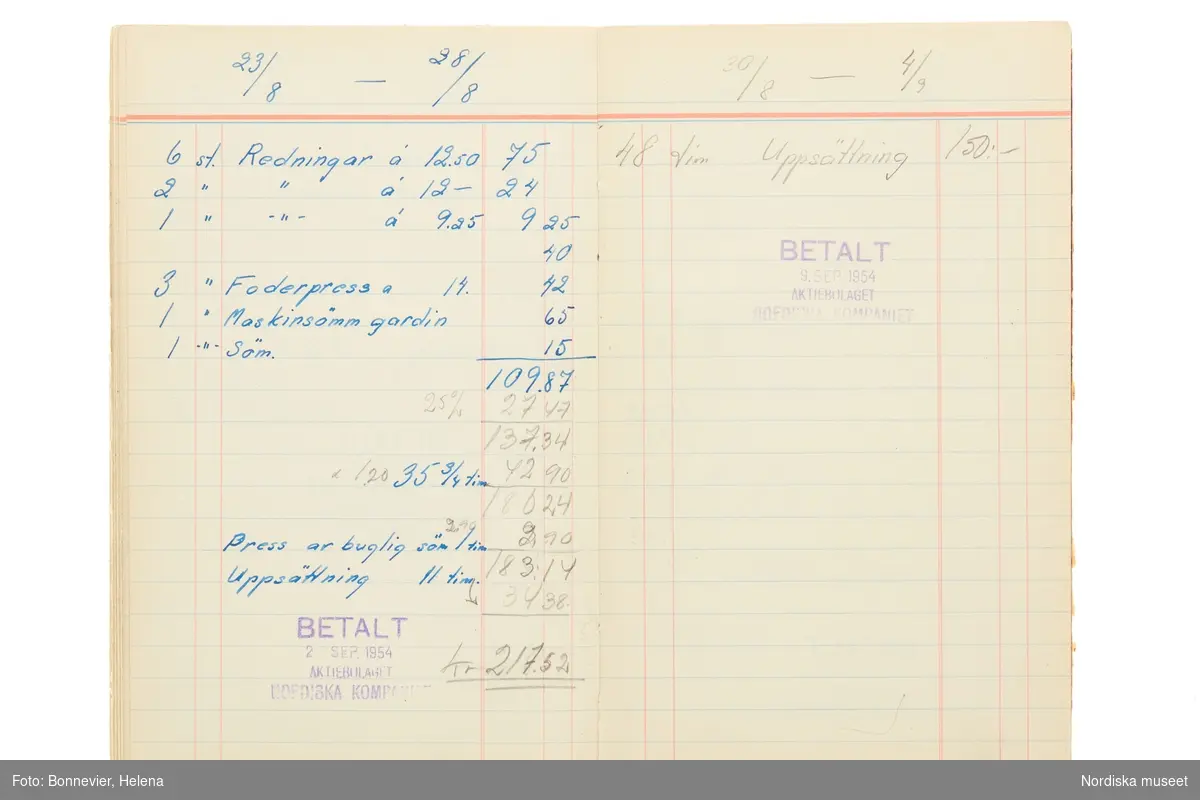 23/8 — 28/8
6 st. Redningar á 12.50 75
2 " " á 12— 24
1 " -"- á 9.25 9 25
40
3 " Foderpress a 14. 42
1 " Maskinsömm gardin 65
1 -"- Söm. 15
109.87
25% 27.47
137.34
á 1.20 35 3/4 tim 42 90
180.24
2.90
Press ar buglig söm 1 tim 2,90
183.14
Uppsättning 11 tim. 34 38.
Kr 217.52
BETALT
2 SEP. 1954
AKTIEBOLAGET
NORDISKA KOMPANIET
30/8 — 4/9
48 tim Uppsättning 150:-
BETALT
9. SEP 1954
AKTIEBOLAGET
NORDISKA KOMPANIET
Foto: Bonnevier, Helena
Nordiska museet